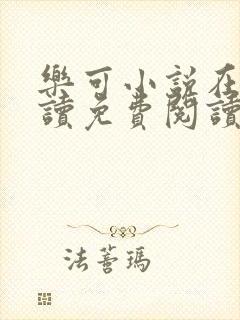 樂可小說在
讀免費閱讀
法蒼瑪